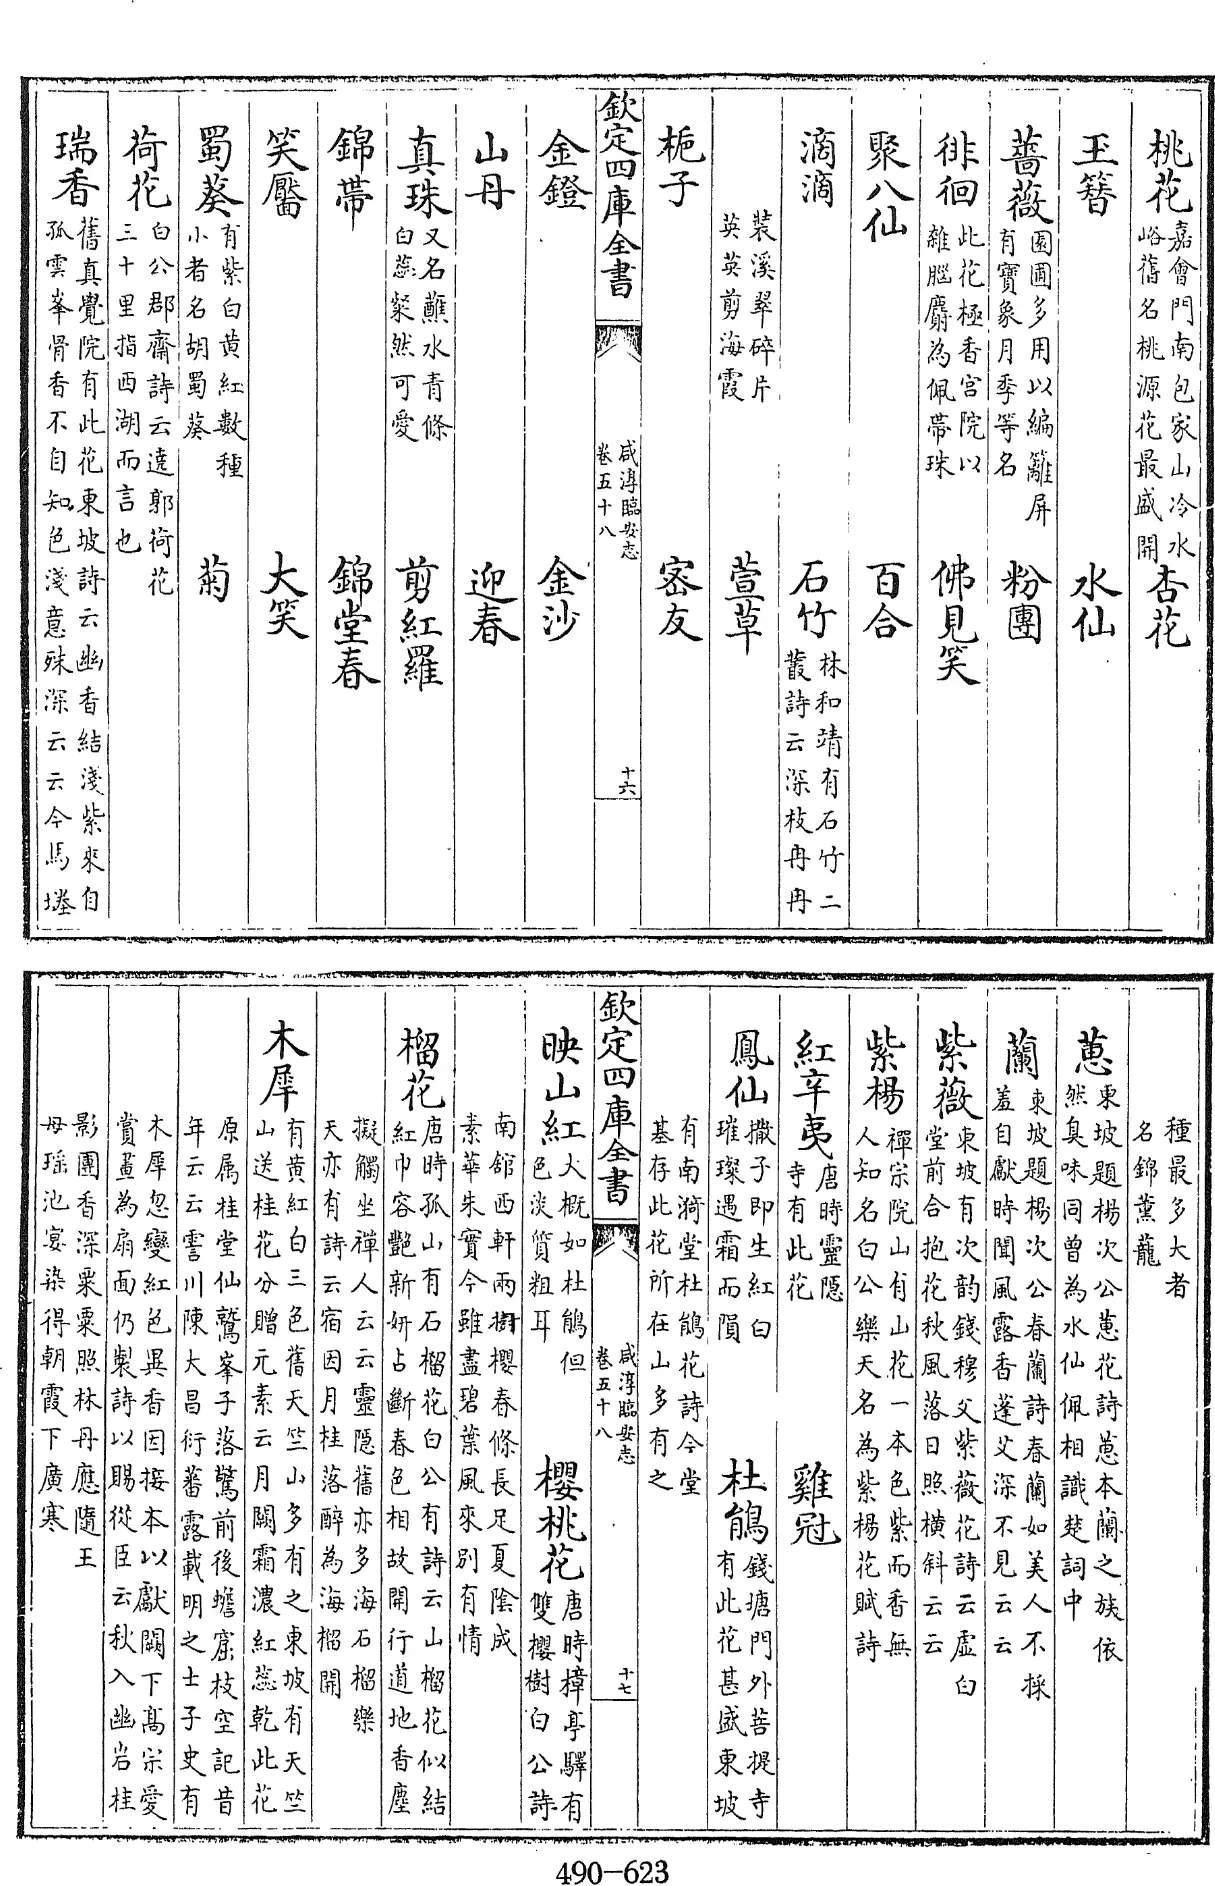 桃花嘉會門南包家山冷水峪舊名桃源花最盛開杏花
玉簪 水仙
薔薇園圃多用以編籬屏有寶象月季等名 粉團
徘徊此花極香宮院以雜腦麝為佩帶珠 佛見笑
聚八仙 百合
滴滴 石竹林和靖有石竹二叢詩云深枝冉冉
裝溪翠碎片英英剪海霞 萱草
梔子 密友
欽定四庫全書 咸淳臨安志卷五十八 十六
金鐙 金沙
山丹 迎春
真珠又名蘸水青條白蕊粲然可愛 剪紅羅
錦帶 錦堂春
笑靨 大笑
蜀葵有紫白黄紅數種小者名胡蜀葵 菊
荷花白公郡齋詩云遶郭荷花三十里指西湖而言也
瑞香舊真覺院有此花東坡詩云幽香結淺紫來自孤雲岑骨香不自知色淺意殊深云云今馬塍
種最多大者名錦薰蘢
蕙東坡題楊次公蕙花詩蕙本蘭之族依然臭味同曾為水仙佩相識楚詞中
蘭東坡題楊次公春蘭詩春蘭如美人不採羞自獻時聞風露香蓬艾深不見云云
紫薇東坡有次韵錢穆父紫薇花詩云虛白堂前合抱花秋風落日照橫斜云云
紫楊禪宗院山有山花一本色紫而香無人知名白公樂天名為紫楊花賦詩
紅辛夷唐時靈隱寺有此花 雞冠
鳳仙撒子即生紅白璀璨遇霜而隕 杜鵑錢塘門外菩提寺有此花甚盛東坡
有南漪堂杜鵑花詩今堂基存此花所在山多有之
欽定四庫全書 咸淳臨安志卷五十八 十七
映山紅大概如杜鵑但色淡質粗耳 櫻桃花唐時樟亭驛有雙櫻樹白公詩
南館西軒兩樹櫻春條長足夏陰成素華朱實今雖盡碧葉風來别有情
榴花唐時孤山有石榴花白公有詩云山榴花似結紅巾容艷新妍占斷春色相故開行道地香塵
擬觸坐禪人云云靈隱舊亦多海石榴樂天亦有詩云宿因月桂落醉為海榴開
木犀有黄紅白三色舊天竺山多有之東坡有天竺山送桂花分贈元素云月闕霜濃紅蕊乾此花
原屬桂堂仙鷲峯子落驚前後蟾窟枝空記昔年云云霅川陳大昌衍蕃露載明之士子史有
木犀忽變紅色異香因接本以獻闕下髙宗愛賞畫為扇面仍製詩以賜從臣云秋入幽岩桂
影團香深粟粟照林丹應隨王母瑶池宴染得朝霞下廣寒
490-623